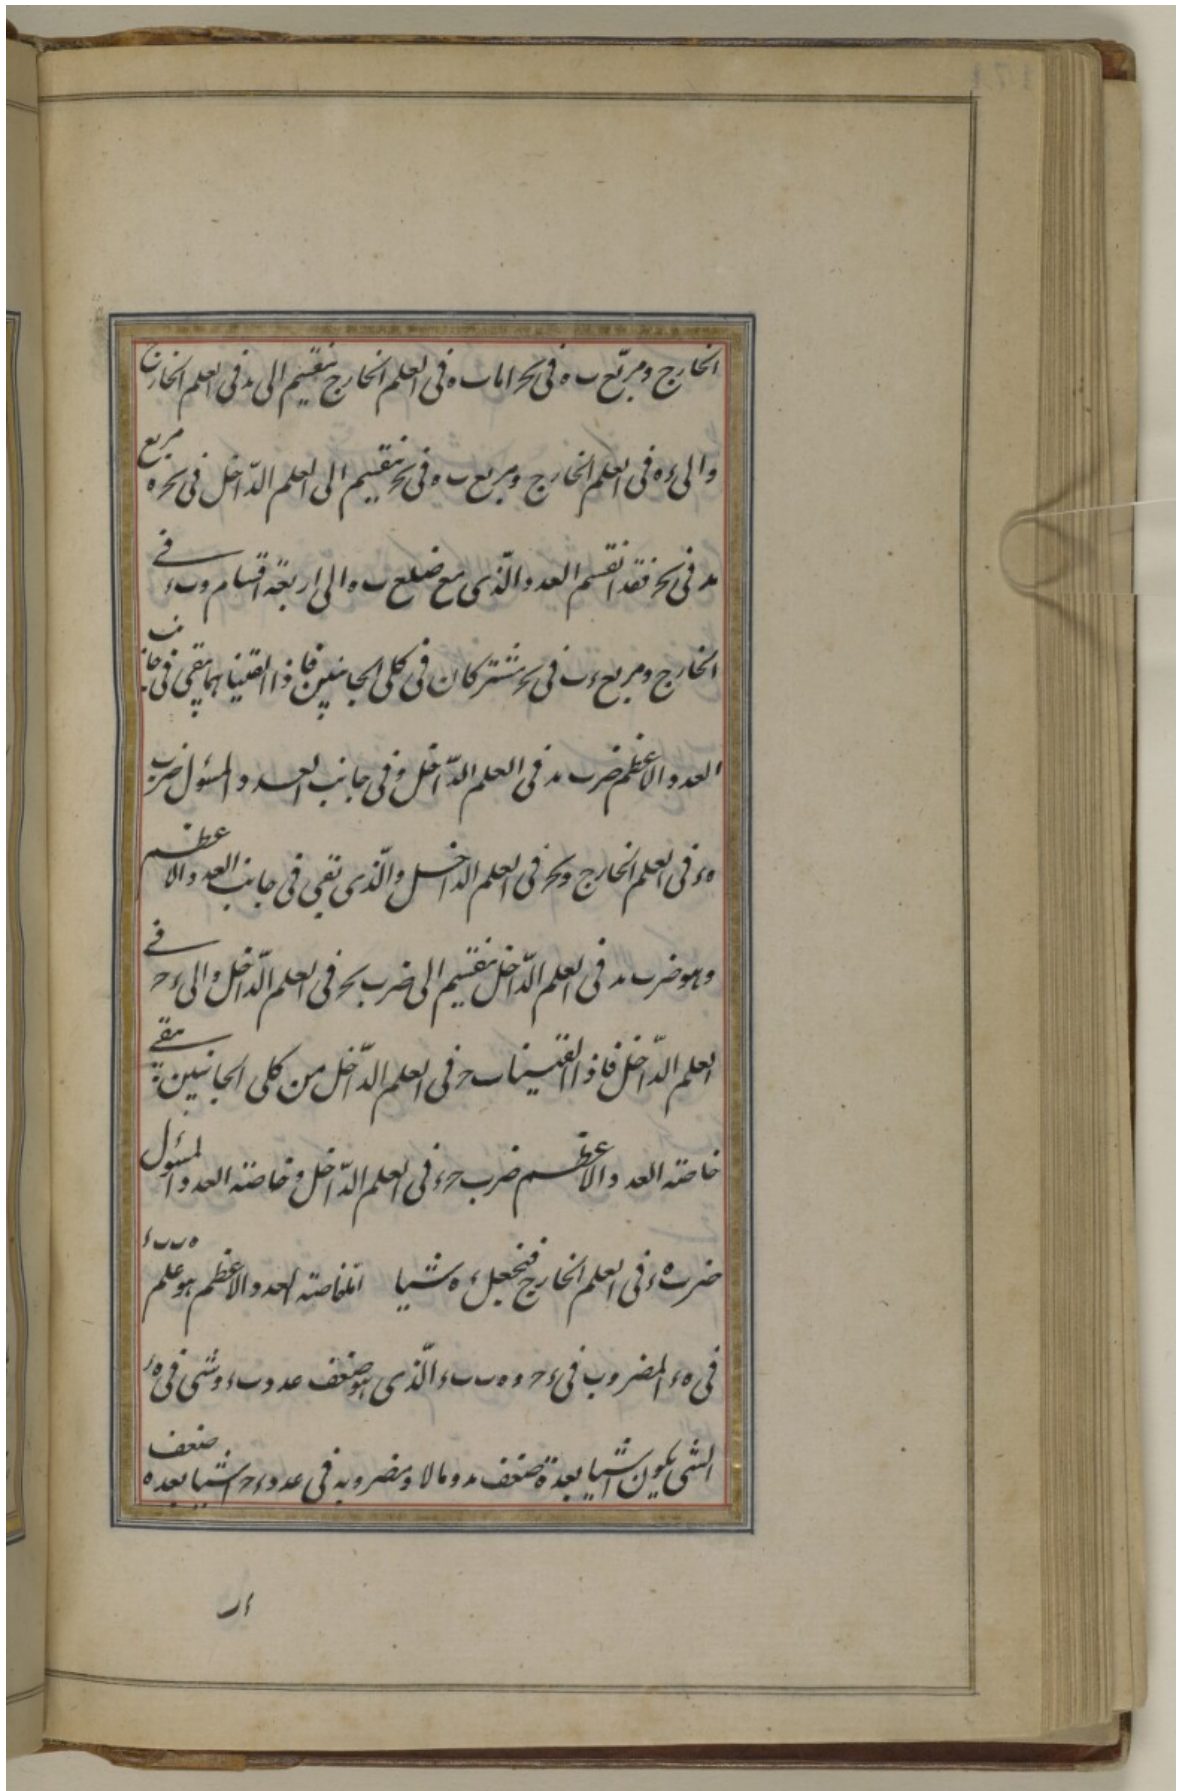 الخارج ومربّع ٮ ه فى ٮحر اما ٮ ه فى العلم الخارج ينقسم الى مد فى العلم الخارج
والى ء ه فى العلم الخارج ومربع ٮ ه فى ٮحر ينقسم الى العلم الدّاخل فى ٮحر ه مربع
مد فى ٮحر فقد انقسم العدد الّذى مع ضلع ٮ ه الى اربعة اقسام وٮ ء فے
الخارج ومربع ء ٮ فى ٮحر مشتركان فى كلى الجانبين فاذا القيناهما يبقى فى جانب
العدد الاعظم ضرب مد فى العلم الدّاخل وفى جانب العدد المسئول ضرب
ه ء فى العلم الخارج وٮحر فى العلم الداخل والّذى بقى فى جانب العدد الاعظم
وهو ضرب مد فى العلم الدّاخل ينقسم الى ضرب ٮحر فى العلم الدّاخل والى ء ح فے
العلم الدّاخل فاذا القينا ٮ ح فى العلم الدّاخل من كلى الجانبين يبقے
خاصّة العدد الاعظم ضرب ح ء فى العلم الدّاخل وخاصّة العدد المسئول
ضرب ه ء فى العلم الخارج فنجعل ء ه شيا امّا خاصّة العدد الاعظم هو علم ه ٮ ٮ ء
فى ه ء المضروب فى ء ح و ه ٮ ٮ ء الّذى هو ضعف عدد ٮ ء وشى فى ه ء
الشى يكون اشيا بعدة ضعف مد ومالا ومضروبه فى عدد ء ح اشيا بعده ضعف
ء ٮ